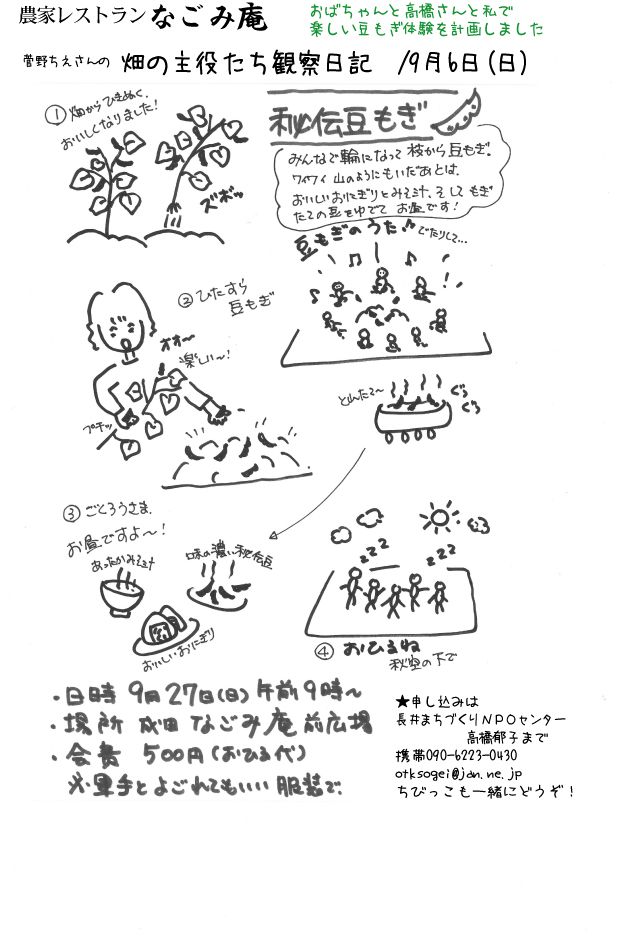 農家レストラン なごみ庵
おばちゃんと高橋さんと私で
楽しい豆もぎ体験を計画しました
菅野ちえさんの 畑の主役たち観察日記 /9月6日(日)
①畑からひきぬく、
おいしくなりました!
ズボッ
秘伝豆もぎ
みんなで輪になって 枝から豆もぎ。
ワイワイ 山のようにもいだあとは、
おいしいおにぎりとみそ汁、そして もぎ
たての豆をゆでて お昼です!
豆もぎのうた♪
でたりして...
②ひたすら
豆もぎ
オオー
楽しい〜!
プチッ
とんたて〜
ぐらぐら
③ごくろうさま、
お昼ですよ〜!
あったかみそ汁
味の濃い秘伝豆
おいしいおにぎり
zzz
zzz
④おひるね
秋空の下で
・日時 9月27日(日)午前9時〜
・場所 成田 なごみ庵前広場
・会費 500円(おひる代)
※軍手とよごれてもいい服装で、
★申し込みは
長井まちづくりNPOセンター
高橋郁子まで
携帯090-6223-0430
otksogei@jan.ne.jp
ちびっこも一緒にどうぞ!